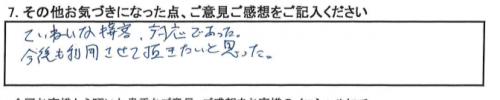 7. その他お気づきになった点、ご意見ご感想をご記入ください
ていねいな接客、対応であった。
今後も利用させて頂きたいと思った。